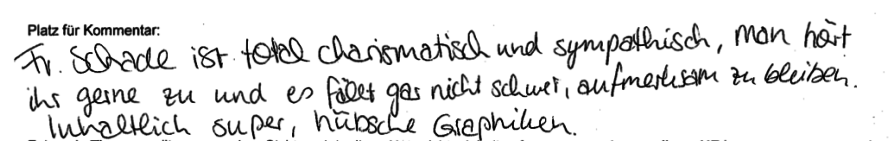 Platz für Kommentar:
Fr. Schade ist total charismatisch und sympathisch, man hört
ihr gerne zu und es fällt gar nicht schwer, aufmerksam zu bleiben.
Inhaltlich super, hübsche Graphiken.